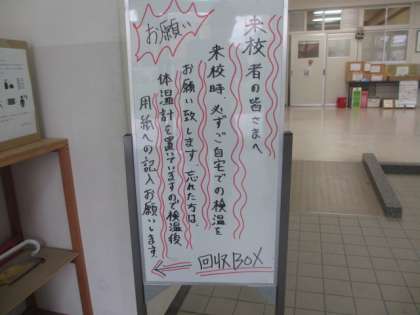 お願い
来校者の皆さまへ
来校時、必ずご自宅での検温を
お願い致します。忘れた方は、
体温計を置いていますので検温後、
用紙への記入お願いします。
回収BOX